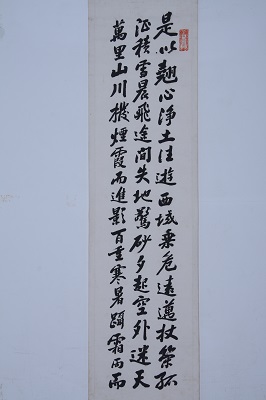 是以翹心淨土往遊西域乗危遠邁杖策孤
征積雪晨飛途間失地驚砂夕起空外迷天
萬里山川撥煙霞而進影百重寒暑躡霜雨而